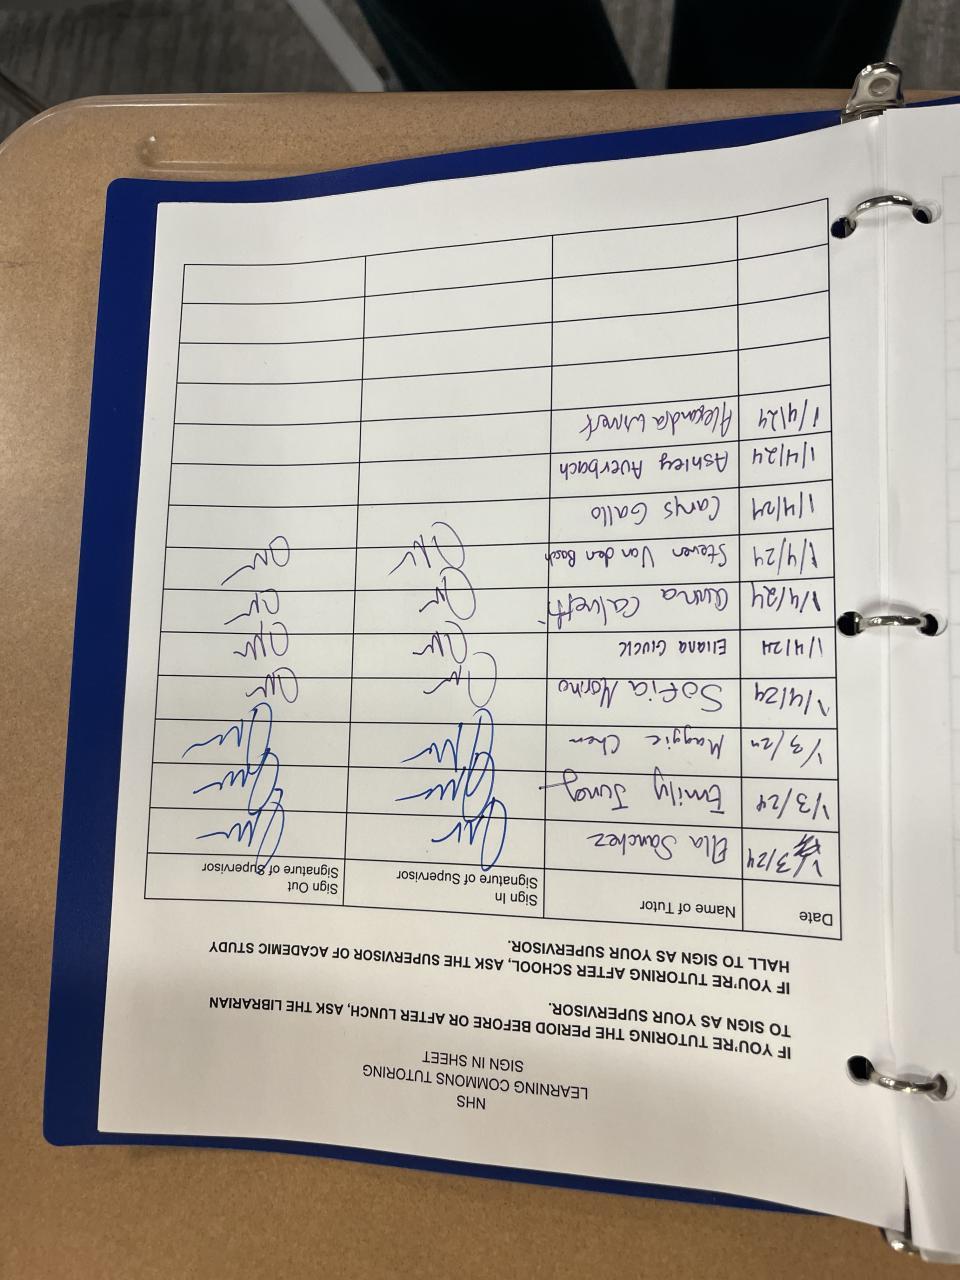 NHS
LEARNING COMMONS TUTORING
SIGN IN SHEET
IF YOU'RE TUTORING THE PERIOD BEFORE OR AFTER LUNCH, ASK THE LIBRARIAN
TO SIGN AS YOUR SUPERVISOR.
IF YOU'RE TUTORING AFTER SCHOOL, ASK THE SUPERVISOR OF ACADEMIC STUDY
HALL TO SIGN AS YOUR SUPERVISOR.
Date Name of Tutor Sign In Sign Out
Signature of Supervisor Signature of Supervisor
1/3/24 Ella Sanchez
1/3/24 Emily Jung
1/3/24 Maggie Chen
1/4/24 Sofia Marino
1/4/24 Eliana Gluck
1/4/24 Anna Calvetti
1/4/24 Steven Van den Bosch
1/4/24 Carys Gallo
1/4/24 Ashley Averbach
1/4/24 Alexandra